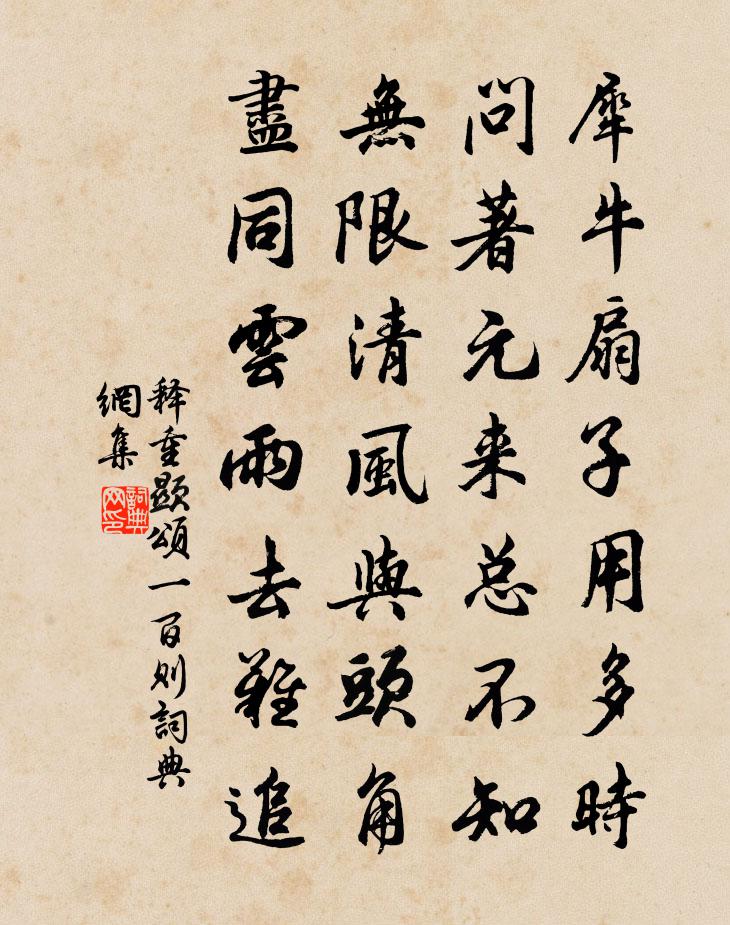 犀牛扇子用多時
問著元来总不知
無限清風與頭角
盡同雲雨去難追
释重顯頌一百则詞典
網集
詞典网印